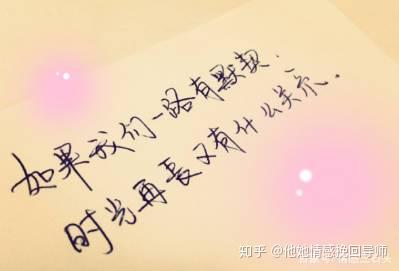 如果我们一路有默契.
时光再长又有什么关系.
知乎 @他她情感挽回导师